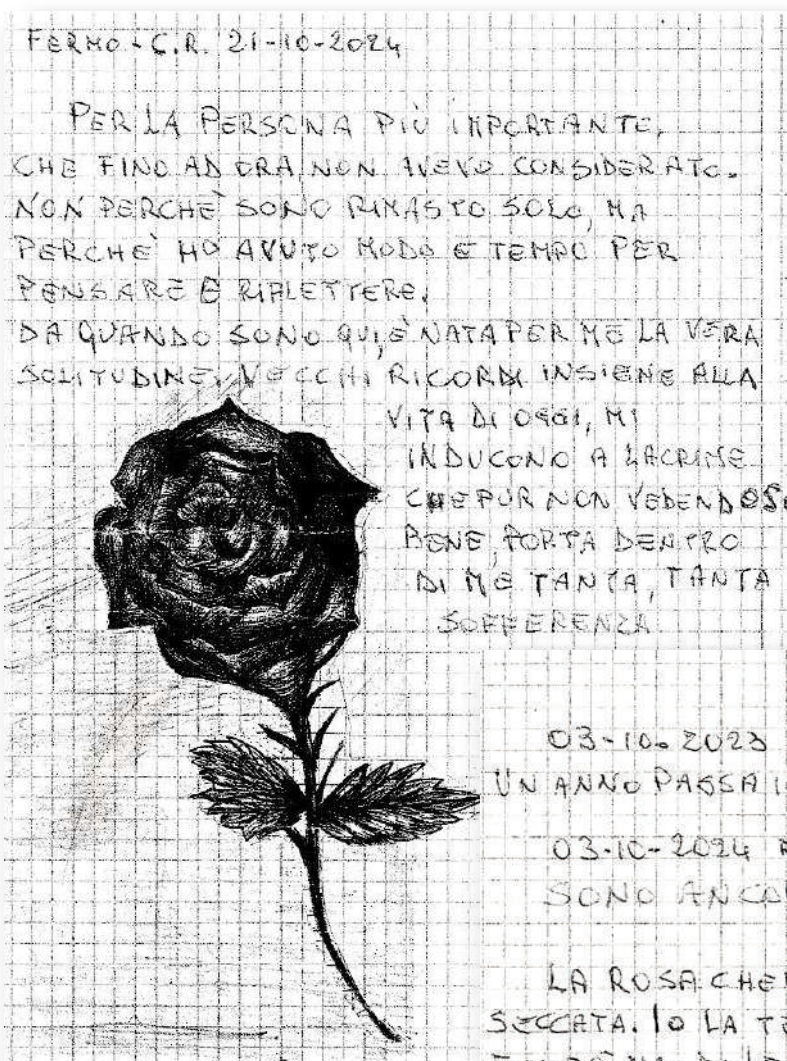 FERMO - C.R. 21-10-2024
PER LA PERSONA PIÙ IMPORTANTE,
CHE FINO AD ORA NON AVEVO CONSIDERATO.
NON PERCHÈ SONO RIMASTO SOLO, MA
PERCHÈ HO AVUTO MODO E TEMPO PER
PENSARE E RIFLETTERE.
DA QUANDO SONO QUI, È NATA PER ME LA VERA
SOLITUDINE. VECCHI RICORDI INSIEME ALLA
VITA DI OGGI, MI
INDUCONO A LACRIME
CHE PUR NON VEDENDOSI
BENE, PORTA DENTRO
DI ME TANTA, TANTA
SOFFERENZA
03-10-2023
UN ANNO PASSA
03-10-2024
SONO
LA ROSA CHE
SECCATA. IO LA